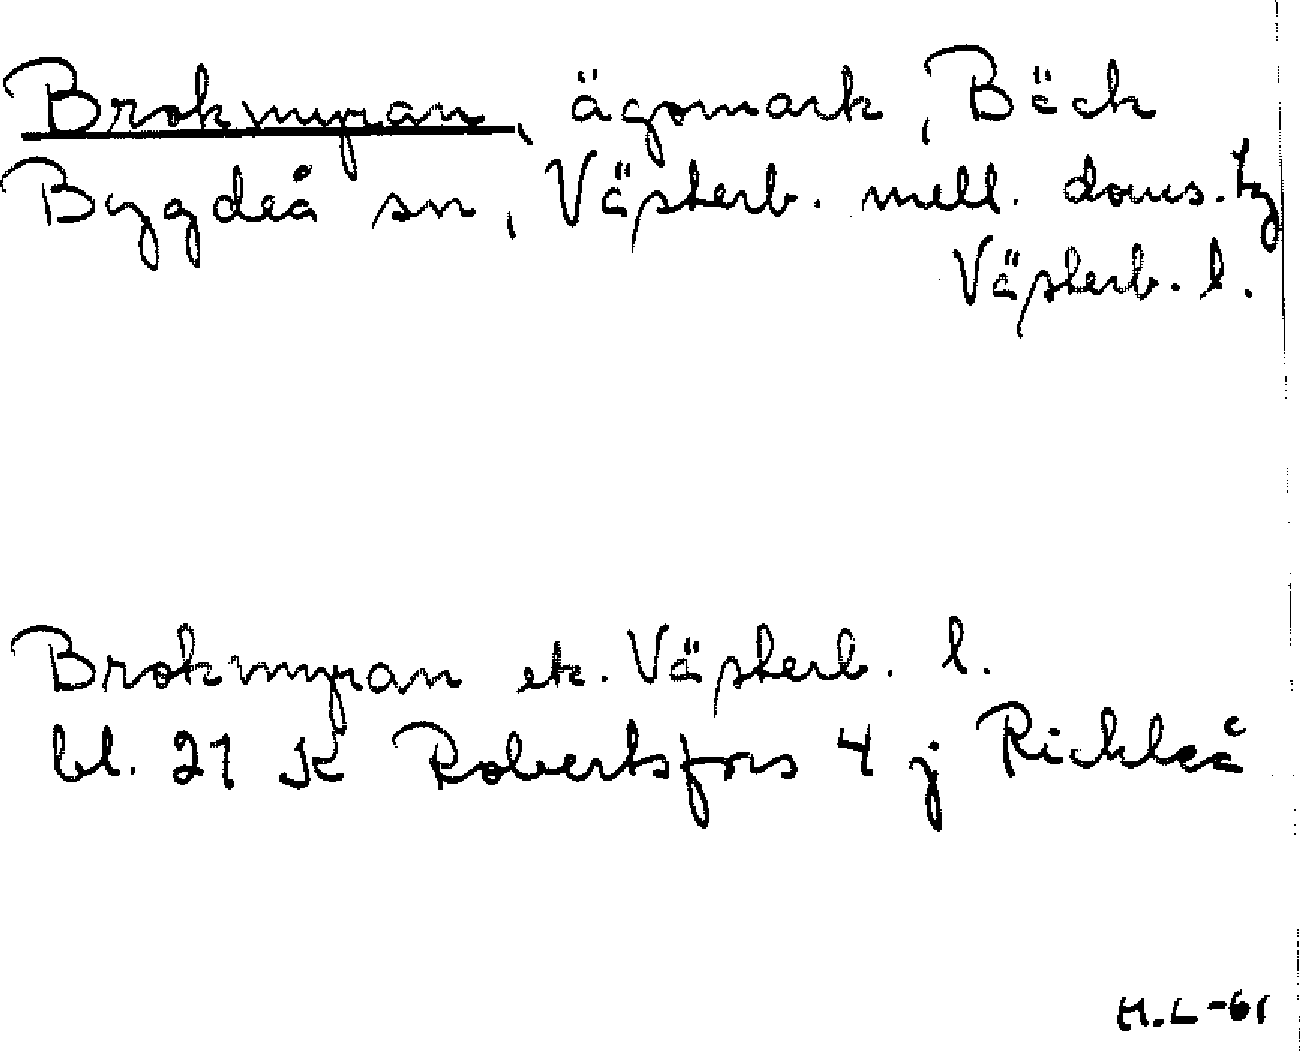 Brokmyran, ägomark, Bäck
Bygdeå sn, Västerb. mell. doms. tg
Västerb. l.
Brokmyran ek. Västerb. l.
bl. 21 K Robertsfors 4 j Rickleå
H.L-61